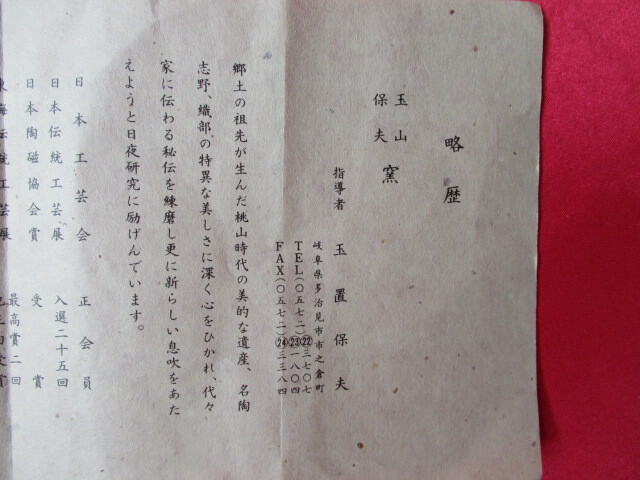 略歴
玉山
保夫
窯
指導者 玉置保夫
岐阜県多治見市市之倉町
TEL(〇五七二)㉒三七〇七
㉓一八〇四
FAX(〇五七二)㉔三三八四
郷土の祖先が生んだ桃山時代の美的な遺産、名陶
志野、織部の特異な美しさに深く心をひかれ、代々
家に伝わる秘伝を練磨し更に新らしい息吹をあた
えようと日夜研究に励げんでいます。
日本工芸会 正会員
日本伝統工芸展 入選二十五回
日本陶磁協会賞 受賞
東海伝統工芸展 最高賞二回